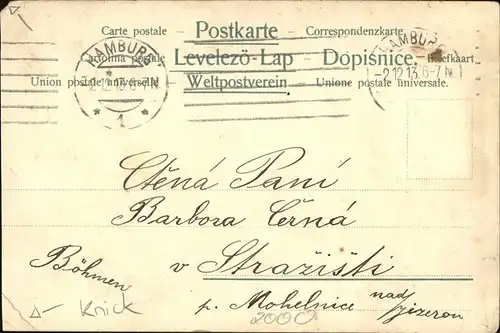 Carte postale – Postkarte – Correspondenzkarte
Cartolina postale Levelező-Lap – Dopisnice. – Briefkaart
Union postale universelle – Weltpostverein. – Unione postale universale.
HAMBURG
2.12.13. 6-7 N
*1*
HAMBURG
-2.12.13. 6-7 N
Ctěná Paní
Barbora Černá
Böhmen v Stražišti
p. Mohelnice nad Jizerou
Knick
2000